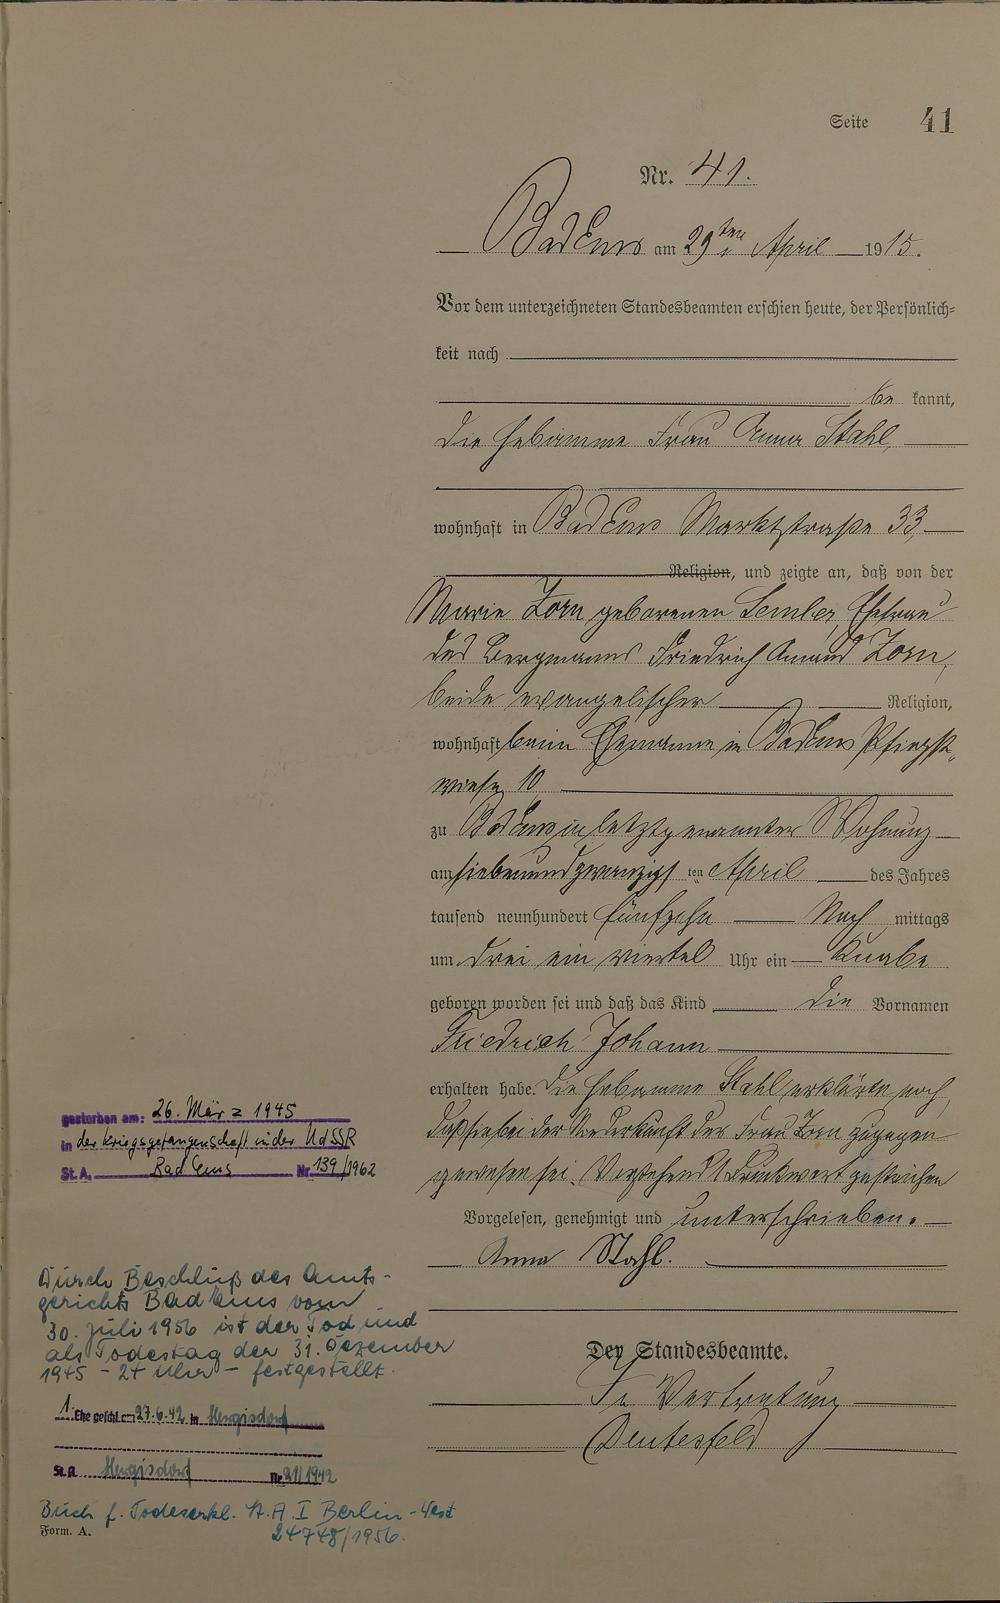 Seite 41
Nr. 41.
Bad Ems am 29ten April 1915.
Vor dem unterzeichneten Standesbeamten erschien heute, der Persönlich=
keit nach
be kannt,
die Hebamme Frau Anna Stahl,
wohnhaft in Bad Ems Marktstraße 33,
Religion, und zeigte an, daß von der
Marie Zorn geborenen Semler, Ehefrau
des Bergmanns Friedrich Amand Zorn,
beide evangelischer Religion,
wohnhaft beim Ehemanne in Bad Ems Pfingst-
wiese 10
zu Bad Ems in letztgenannter Wohnung
am siebenundzwanzigsten April des Jahres
tausend neunhundert fünfzehn Nach mittags
um drei ein viertel Uhr ein Knabe
geboren worden sei und daß das Kind die Vornamen
Friedrich Johann
erhalten habe. Die Hebamme Stahl erklärte noch,
daß sie bei der Niederkunft der Frau Zorn zugegen
gewesen sei. Vorstehend 1 Druckwort gestrichen
Vorgelesen, genehmigt und unterschrieben.
Anna Stahl.
Der Standesbeamte.
In Vertretung
gestorben am: 26. März 1945
in der Kriegsgefangenschaft in der UdSSR
St. A. Bad Ems Nr. 139/1962
Durch Beschluß des Amts-
gerichts Bad Ems vom
30. Juli 1956 ist der Tod und
als Todestag der 31. Dezember
1945 - 24 Uhr - festgestellt.
1. Ehe geschl. am 27.6.42 in Hergisdorf
St. A. Hergisdorf Nr. 21/1942
Buch f. Todeserkl. St. A. I Berlin-West
24748/1956.
Form. A.